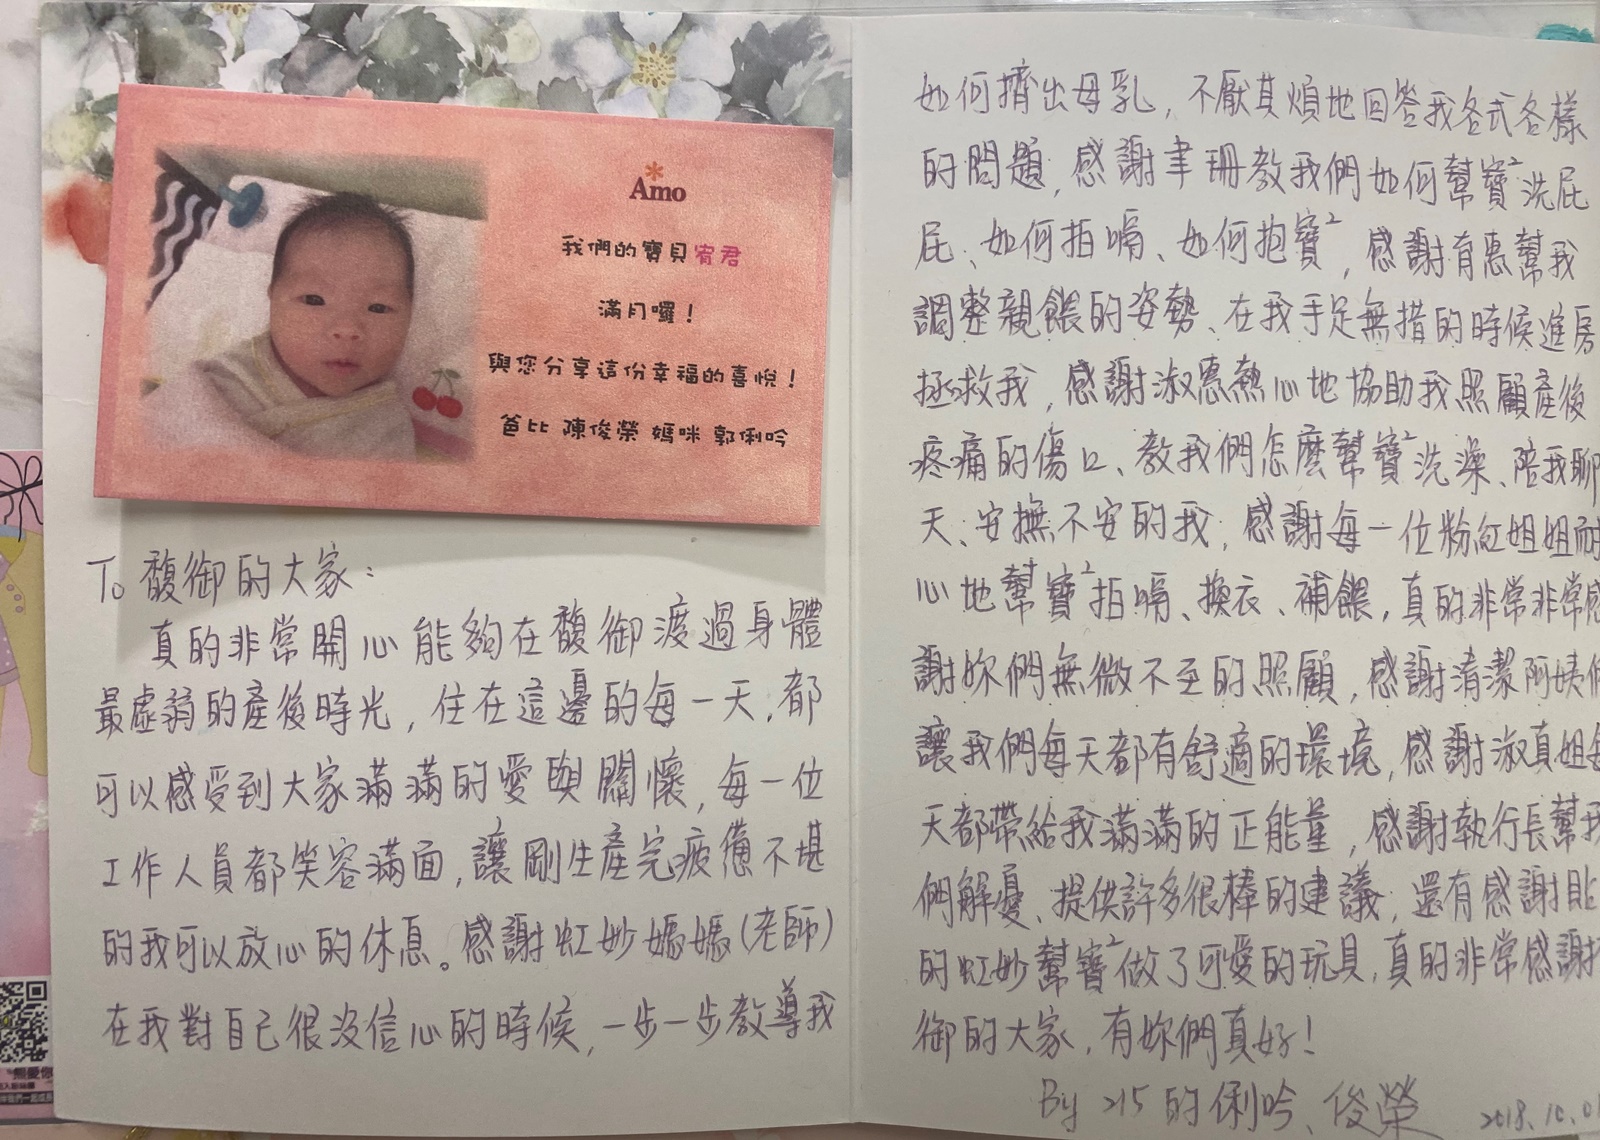 Amo
我們的寶貝宥君
滿月囉！
與您分享這份幸福的喜悅！
爸比 陳俊榮 媽咪 郭俐吟
To 馥御的大家：
真的非常開心能夠在馥御渡過身體
最虛弱的產後時光，住在這邊的每一天，都
可以感受到大家滿滿的愛與關懷，每一位
工作人員都笑容滿面，讓剛生產完疲憊不堪
的我可以放心的休息。感謝虹妙媽媽(老師)
在我對自己很沒信心的時候，一步一步教導我
如何擠出母乳，不厭其煩地回答我各式各樣
的問題，感謝聿珊教我們如何幫寶²洗屁
屁、如何拍嗝、如何抱寶²，感謝有惠幫我
調整親餵的姿勢、在我手足無措的時候進房
拯救我，感謝淑惠熱心地協助我照顧產後
疼痛的傷口、教我們怎麼幫寶²洗澡、陪我聊
天、安撫不安的我，感謝每一位粉紅姐姐耐
心地幫寶²拍嗝、換衣、補餵，真的非常非常感
謝妳們無微不至的照顧，感謝清潔阿姨們
讓我們每天都有舒適的環境，感謝淑真姐每
天都帶給我滿滿的正能量，感謝執行長幫我
們解憂、提供許多很棒的建議，還有感謝
的虹妙幫寶²做了可愛的玩具，真的非常感謝
御的大家，有妳們真好！
By 215 的俐吟、俊榮 2018.10.0